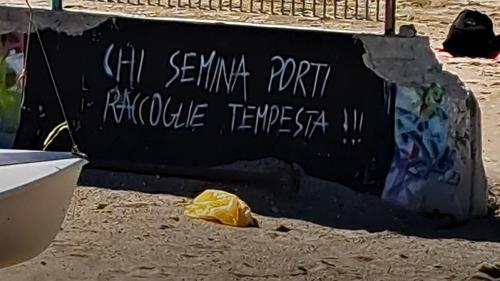 CHI SEMINA PORTI
RACCOGLIE TEMPESTA !!!